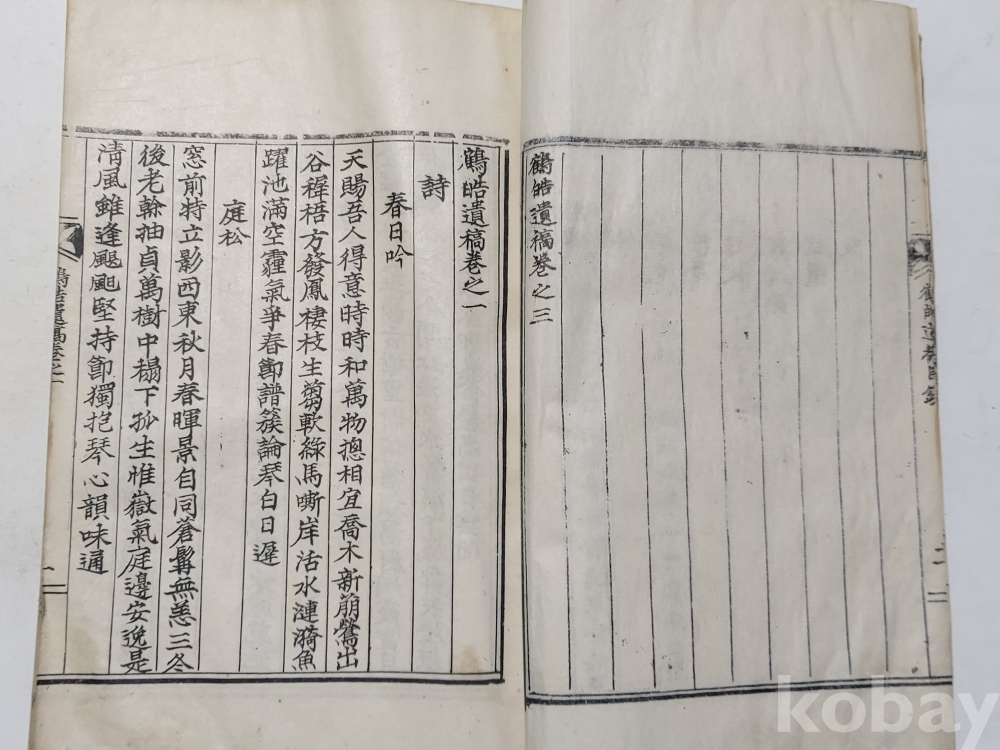 鶴皓遺稿卷之三
鶴皓遺稿卷之一
詩
春日吟
天賜吾人得意時時和萬物摠相宜喬木新崩鶯出
谷稺梧方發鳳棲枝生蒭軟綠馬嘶岸活水漣漪魚
躍池滿空霾氣爭春節譜簇論琴白日遲
庭松
窓前特立影西東秋月春暉景自同蒼髯無恙三冬
後老榦抽貞萬樹中榻下孤生惟嶽氣庭邊安逸是
淸風雖逢颶颱堅持節獨抱琴心韻味通
鶴皓遺稿卷之一
一
kobay